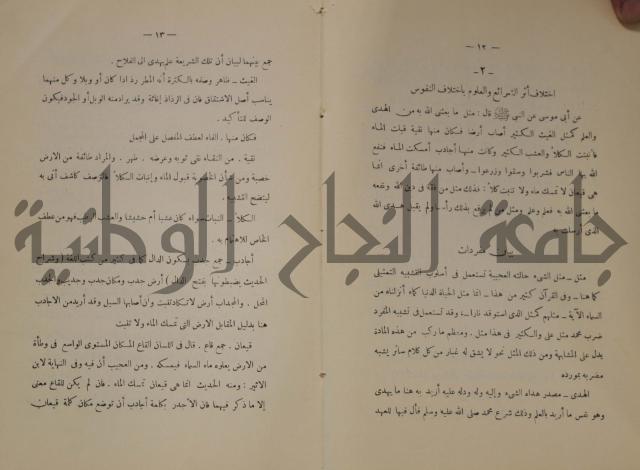 — ١٢ —
— ٢ —
اختلاف أثر الشرائع والعلوم باختلاف النفوس
عن أبي موسى عن النبي ﷺ قال : مثل ما بعثني الله به من الهدى
والعلم كمثل الغيث الكثير أصاب أرضا فكان منها نقية قبلت الماء
فأنبتت الكلأ والعشب الكثير وكانت منها أجادب أمسكت الماء فنفع
الله بها الناس فشربوا وسقوا وزرعوا ـ وأصاب منها طائفة أخرى انما
هى قيعان لا تمسك ماء ولا تنبت كلأ : فذلك مثل من فقه في دين الله ونفعه
ما بعثني الله به فعلم وعلم ومثل من لم يرفع بذلك رأسا ولم يقبل هدى الله
الذى أرسلت به
بيان المفردات
مثل ـ مثل الشىء حالته العجيبة تستعمل فى أسلوب التشبيه التمثيلى
كما هنا ـ وفى القرآن كثير من هذا ـ انما مثل الحياة الدنيا كماء أنزلناه من
السماء الآية ـ مثلهم كمثل الذى استوقد نارا ـ وقد تستعمل فى تشبيه المفرد
ضرب محمد مثل على والكثير فى هذا مثل . ومعظم ما ركب من هذه المادة
يدل على المشابهة ومن ذلك المثل نحو لا يشق له غبار من كل كلام سائر يشبه
مضربه بمورده
الهدى ـ مصدر هداه الشىء وإليه وله ودله عليه أريد به هنا ما يهدى
وهو نفس ما أريد بالعلم وذلك شرع محمد صلى الله عليه وسلم فأل فيها للعهد
— ١٣ —
جمع بينهما لبيان أن تلك الشريعة علم يهدى الى الفلاح .
الغيث ـ ظاهر وصفه بالكثرة أنه المطر رذ اذا كان أو وبلا وكل منهما
يناسب أصل الاشتقاق فان فى الرذاذ إغاثة وقد يراد منه الوبل أو الجود فيكون
الوصف للتأكيد .
فكان منها . الفاء لعطف المفصل على المجمل
نقية . من النقاء نقى ثوبه وعرضه . طهر . والمراد طائفة من الارض
خصبة ومن شأن الخصوبة قبول الماء وإنبات الكلأ فالوصف كاشف أتى به
ليتضح التشبيه .
الكلأ ـ النبات سواء كان عشبا أم حشيشا والعشب الرطب فهو من عطف
الخاص للاهتمام به .
أجادب ـ جمع جدب بسكون الدال كما فى كثير من كتب اللغة ( وشراح
الحديث يضبطونها بفتح الدال ) أرض جدب ومكان جدب وجديب والجدب
المحل . والمجداب أرض لا تكاد تنبت وان أصابها السيل وقد أريد من الاجادب
هنا بدليل المقابل الارض التى تمسك الماء ولا تنبت
قيعان . جمع قاع . قال فى اللسان القاع المكان المستوى الواسع فى وطأة
من الارض يعلوه ماء السماء فيمسكه . ومن العجيب أن فيه وفى النهاية لابن
الاثير : ومنه الحديث انما هى قيعان تمسك الماء . فان لم يكن للقاع معنى
إلا ما ذكر فيهما فان الأجدر بكلمة أجادب أن توضع مكان كلمة قيعان
جامعة النجاح الوطنية